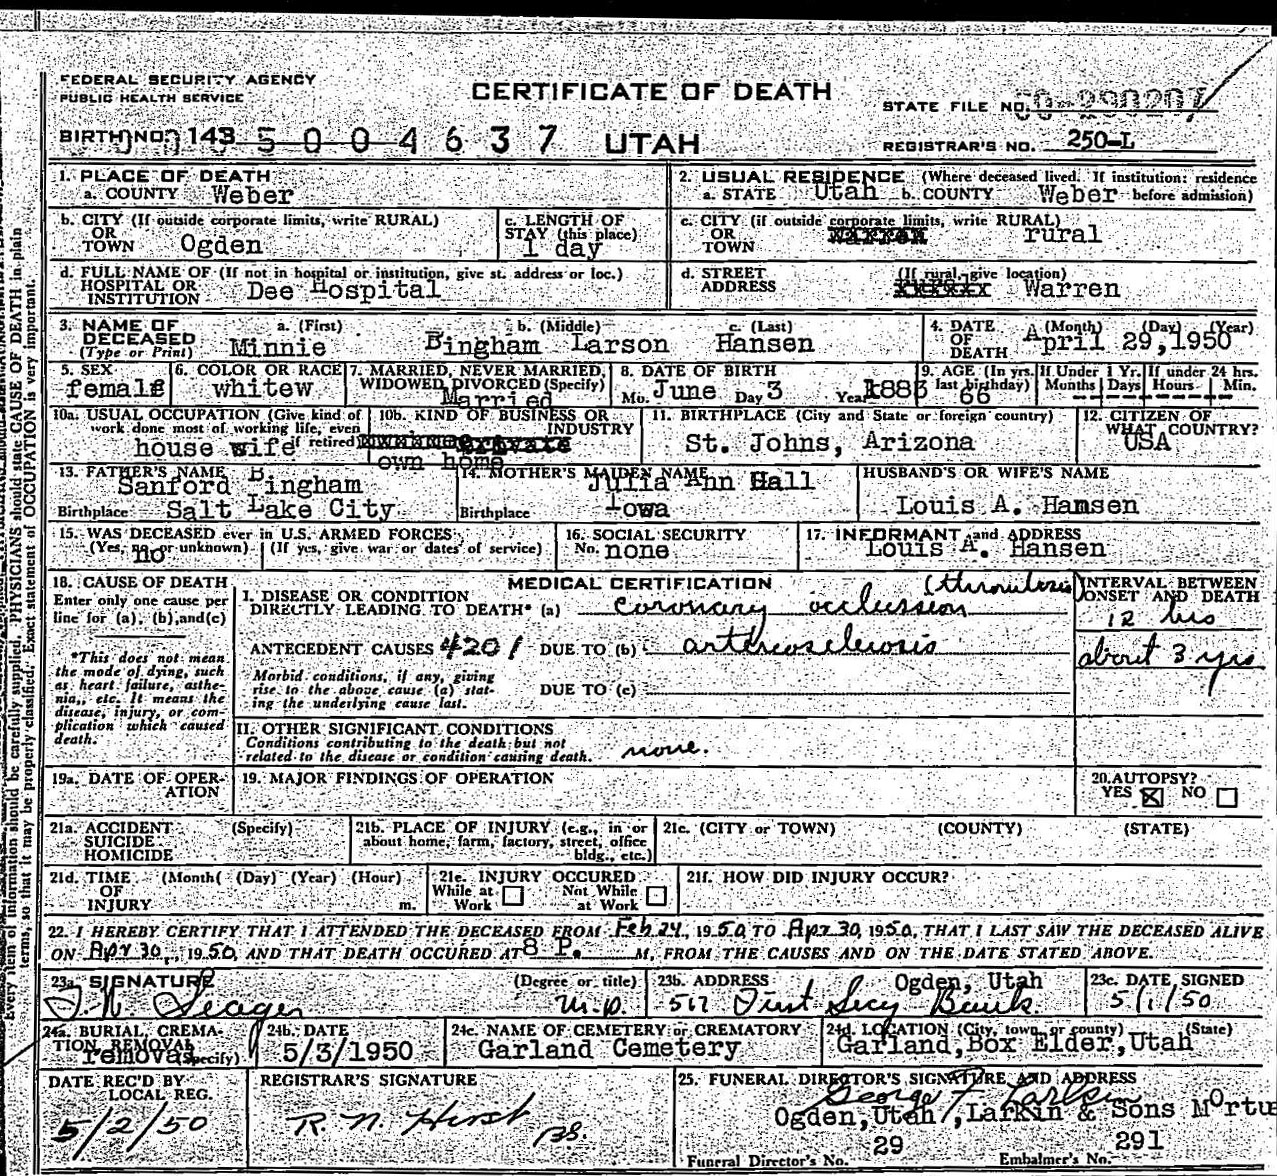 FEDERAL SECURITY AGENCY
PUBLIC HEALTH SERVICE
CERTIFICATE OF DEATH
STATE FILE NO.
BIRTH NO. 143 5 0 0 4 6 3 7 UTAH
REGISTRAR'S NO. 250-L
1. PLACE OF DEATH
a. COUNTY Weber
2. USUAL RESIDENCE (Where deceased lived. If institution: residence before admission)
a. STATE Utah b. COUNTY Weber
b. CITY (If outside corporate limits, write RURAL) OR TOWN Ogden
c. LENGTH OF STAY (this place) 1 day
c. CITY (if outside corporate limits, write RURAL) OR TOWN rural
d. FULL NAME OF HOSPITAL OR INSTITUTION (If not in hospital or institution, give st. address or loc.) Dee Hospital
d. STREET ADDRESS (If rural, give location) Warren
3. NAME OF DECEASED (Type or Print)
a. (First) b. (Middle) c. (Last)
Minnie Bingham Larson Hansen
4. DATE OF DEATH (Month) (Day) (Year) April 29,1950
5. SEX female
6. COLOR OR RACE whitew
7. MARRIED, NEVER MARRIED, WIDOWED, DIVORCED (Specify) Married
8. DATE OF BIRTH Mo. June Day 3 Year 1883
9. AGE (In yrs. last birthday) 66
If Under 1 Yr. Months Days
If under 24 hrs. Hours Min.
10a. USUAL OCCUPATION (Give kind of work done most of working life, even if retired) house wife
10b. KIND OF BUSINESS OR INDUSTRY own home
11. BIRTHPLACE (City and State or foreign country) St. Johns, Arizona
12. CITIZEN OF WHAT COUNTRY? USA
13. FATHER'S NAME Sanford Bingham
Birthplace Salt Lake City
14. MOTHER'S MAIDEN NAME Julia Ann Hall
Birthplace Iowa
HUSBAND'S OR WIFE'S NAME
Louis A. Hamsen
15. WAS DECEASED ever in U.S. ARMED FORCES?
(Yes, no, or unknown) no (If yes, give war or dates of service)
16. SOCIAL SECURITY No. none
17. INFORMANT and ADDRESS
Louis A. Hansen
18. CAUSE OF DEATH
Enter only one cause per line for (a), (b), and (c)
*This does not mean the mode of dying, such as heart failure, asthenia, etc. It means the disease, injury, or complication which caused death.
MEDICAL CERTIFICATION
I. DISEASE OR CONDITION DIRECTLY LEADING TO DEATH* (a) coronary occlussion (thrombosis)
INTERVAL BETWEEN ONSET AND DEATH
12 hrs
ANTECEDENT CAUSES 4201 DUE TO (b) arteriosclerosis
about 3 yrs
Morbid conditions, if any, giving rise to the above cause (a) stating the underlying cause last.
DUE TO (c)
II. OTHER SIGNIFICANT CONDITIONS
Conditions contributing to the death but not related to the disease or condition causing death. none.
19a. DATE OF OPERATION
19. MAJOR FINDINGS OF OPERATION
20. AUTOPSY?
YES ☒ NO ☐
21a. ACCIDENT SUICIDE HOMICIDE (Specify)
21b. PLACE OF INJURY (e.g., in or about home, farm, factory, street, office bldg., etc.)
21c. (CITY or TOWN) (COUNTY) (STATE)
21d. TIME OF INJURY (Month( (Day) (Year) (Hour) m.
21e. INJURY OCCURED
While at Work ☐ Not While at Work ☐
21f. HOW DID INJURY OCCUR?
22. I HEREBY CERTIFY THAT I ATTENDED THE DECEASED FROM Feb 24, 1950, TO Apr 30, 1950, THAT I LAST SAW THE DECEASED ALIVE
ON Apr 30, 1950, AND THAT DEATH OCCURED AT 8 P. M, FROM THE CAUSES AND ON THE DATE STATED ABOVE.
23a. SIGNATURE (Degree or title)
Seager M.D.
23b. ADDRESS Ogden, Utah
517 First Secy Bank
23c. DATE SIGNED
5/1/50
24a. BURIAL, CREMATION, REMOVAL (Specify) removal
24b. DATE
5/3/1950
24c. NAME OF CEMETERY or CREMATORY
Garland Cemetery
24d. LOCATION (City, town, or county) (State)
Garland, Box Elder, Utah
DATE REC'D BY LOCAL REG.
5/2/50
REGISTRAR'S SIGNATURE
R. N. Hirst
25. FUNERAL DIRECTOR'S SIGNATURE AND ADDRESS
George F Larkin
Ogden, Utah, Larkin & Sons Mortu
29 291
Funeral Director's No. Embalmer's No.
Every item of information should be carefully supplied. PHYSICIANS should state CAUSE OF DEATH in plain
terms, so that it may be properly classified. Exact statement of OCCUPATION is very important.